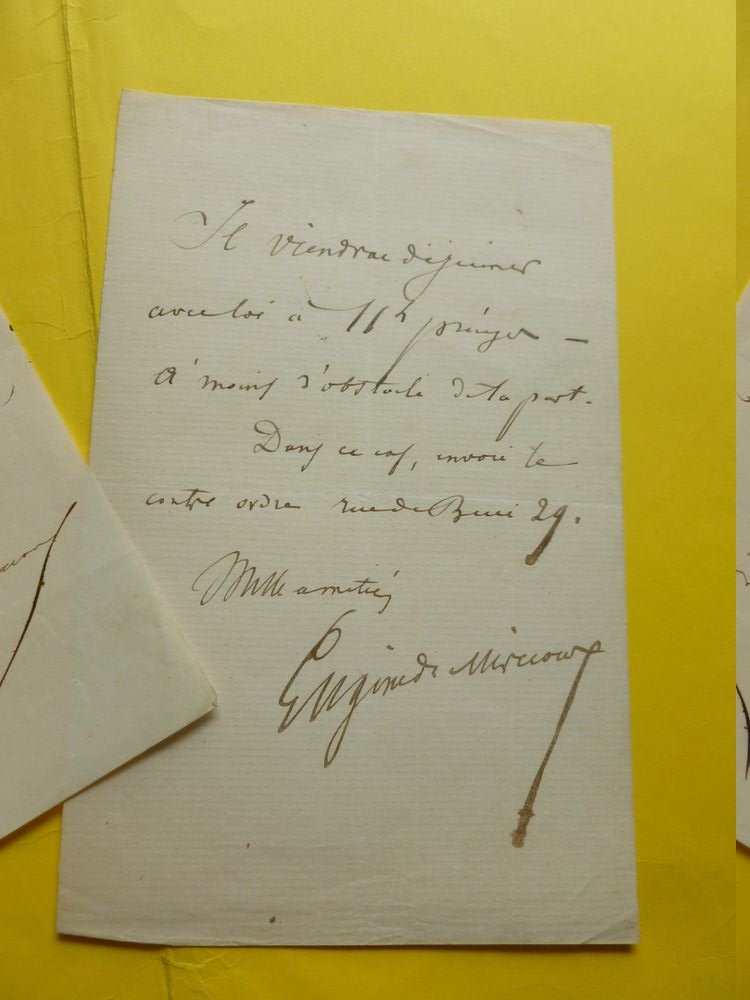 Il viendra déjeuner
avec toi à 11h précises —
A moins d'obstacle de ta part.
Dans ce cas, envoie le
contre ordre rue de Buci 29.
Mille amitiés
Eugène de Mirecourt